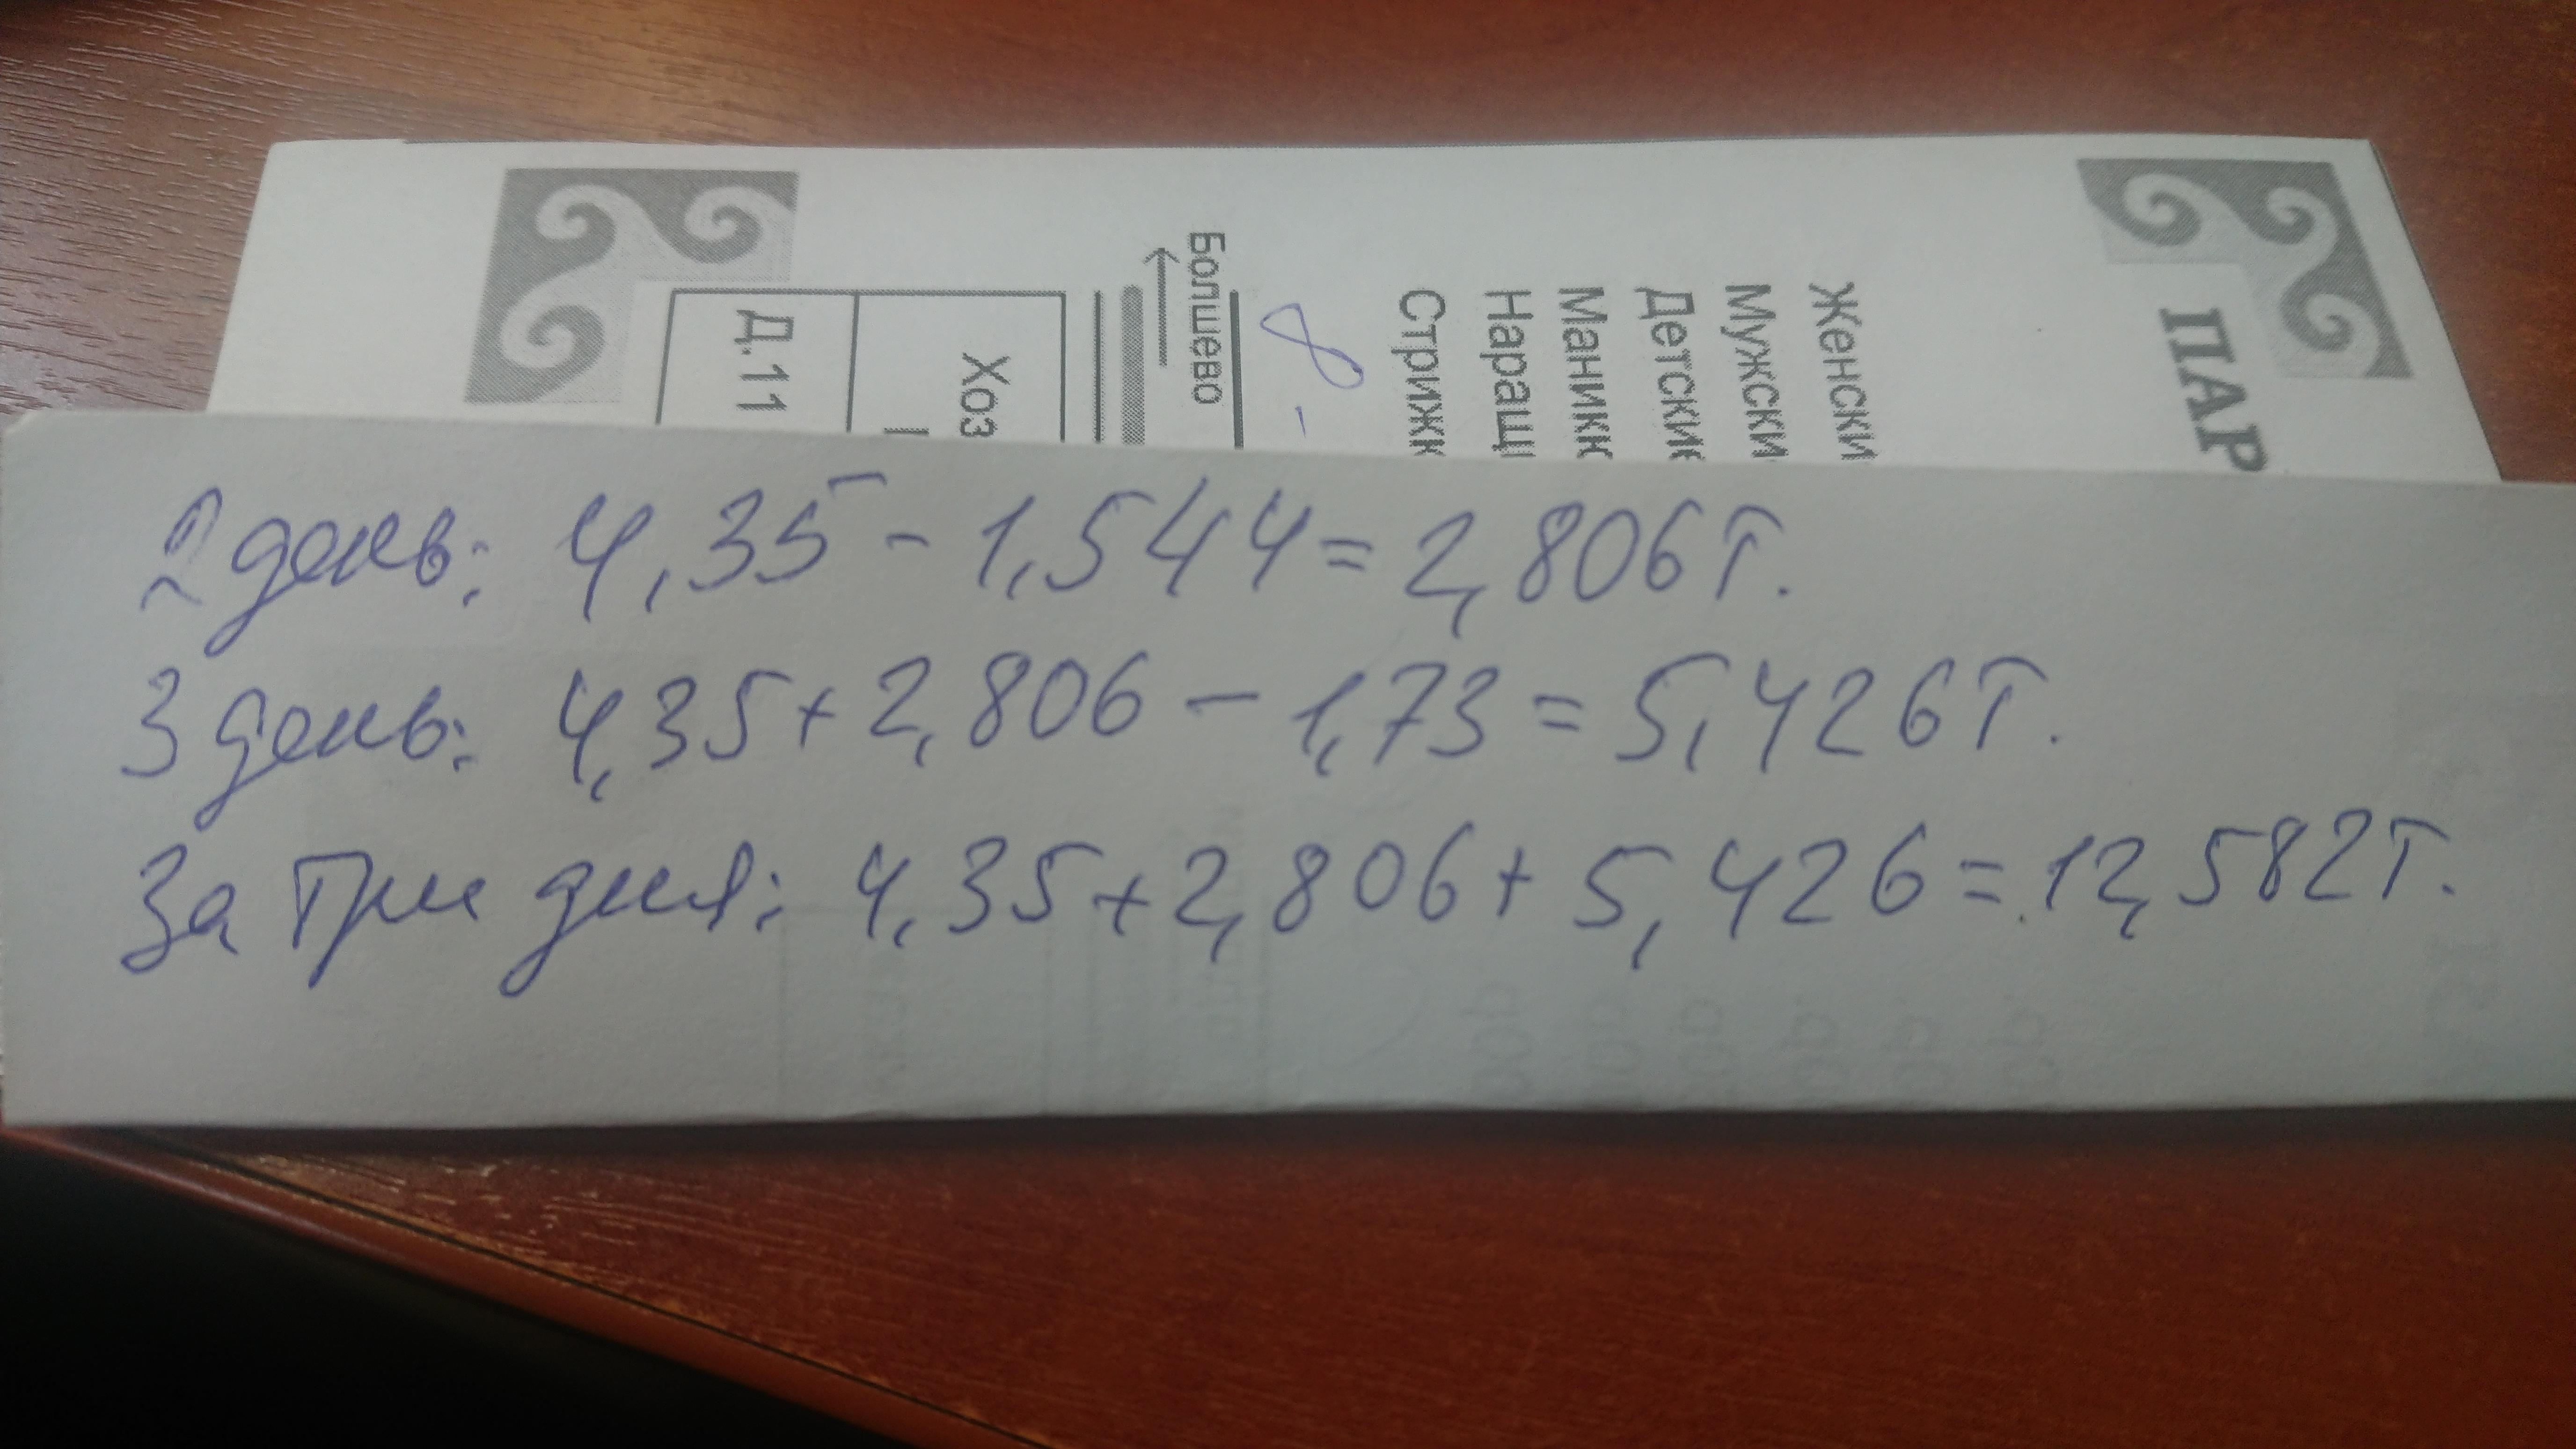 ПАР
Женски
Мужски
Детски
Маникк
Наращ
Стрижк
8 -
Болшево
Хоз
Д.11
2 день: 4,35 - 1,544 = 2,806 т.
3 день: 4,35 + 2,806 - 1,73 = 5,426 т.
За три дня: 4,35 + 2,806 + 5,426 = 12,582 т.